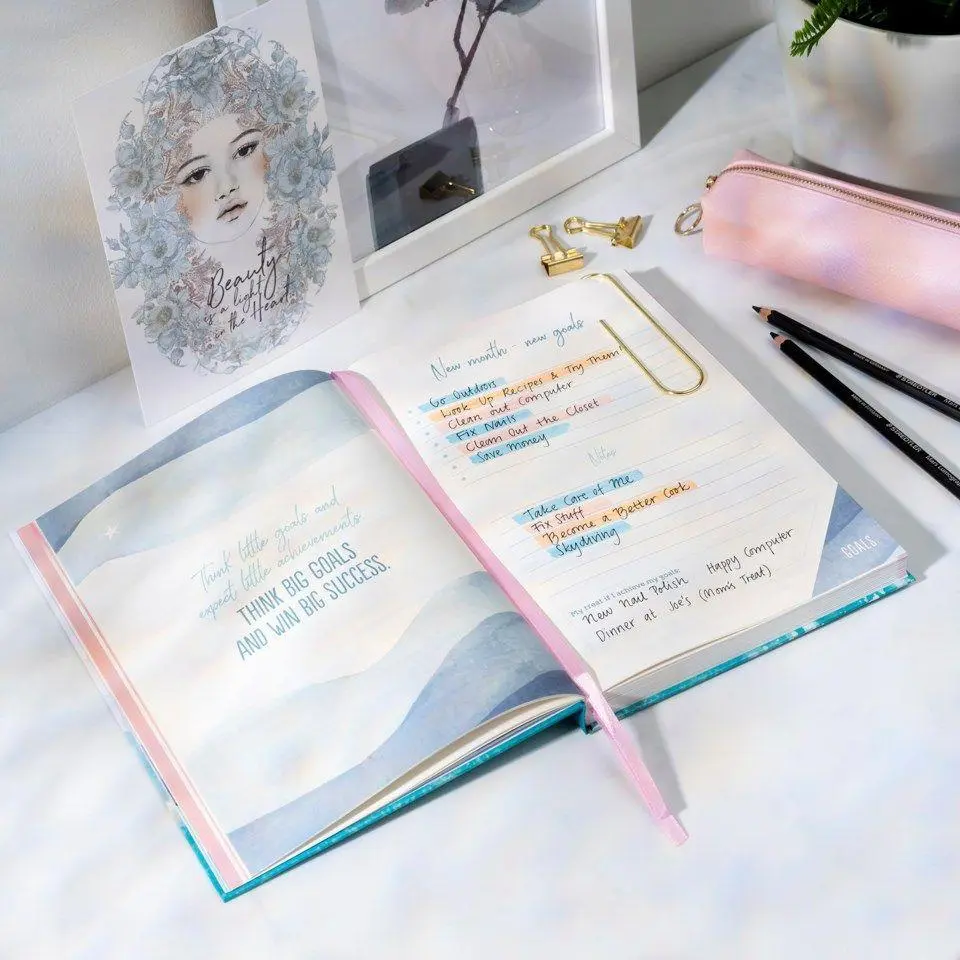 Beauty
is a light
in the Heart
Think little goals and
expect little achievements
THINK BIG GOALS
AND WIN BIG SUCCESS.
New month - new goals
Go Outdrors
Look Up Recipes & Try Them!
Clean out Computer
Fix Nails
Clean Out the Closet
Save Money
Notes
Take Care of Me
Fix Stuff
Become a Better Cook
Skydiving
GOALS
My treat if I achieve my goals:
New Nail Polish Happy Computer
Dinner at Joe's (Mom's Treat)
STAEDTLER
STAEDTLER